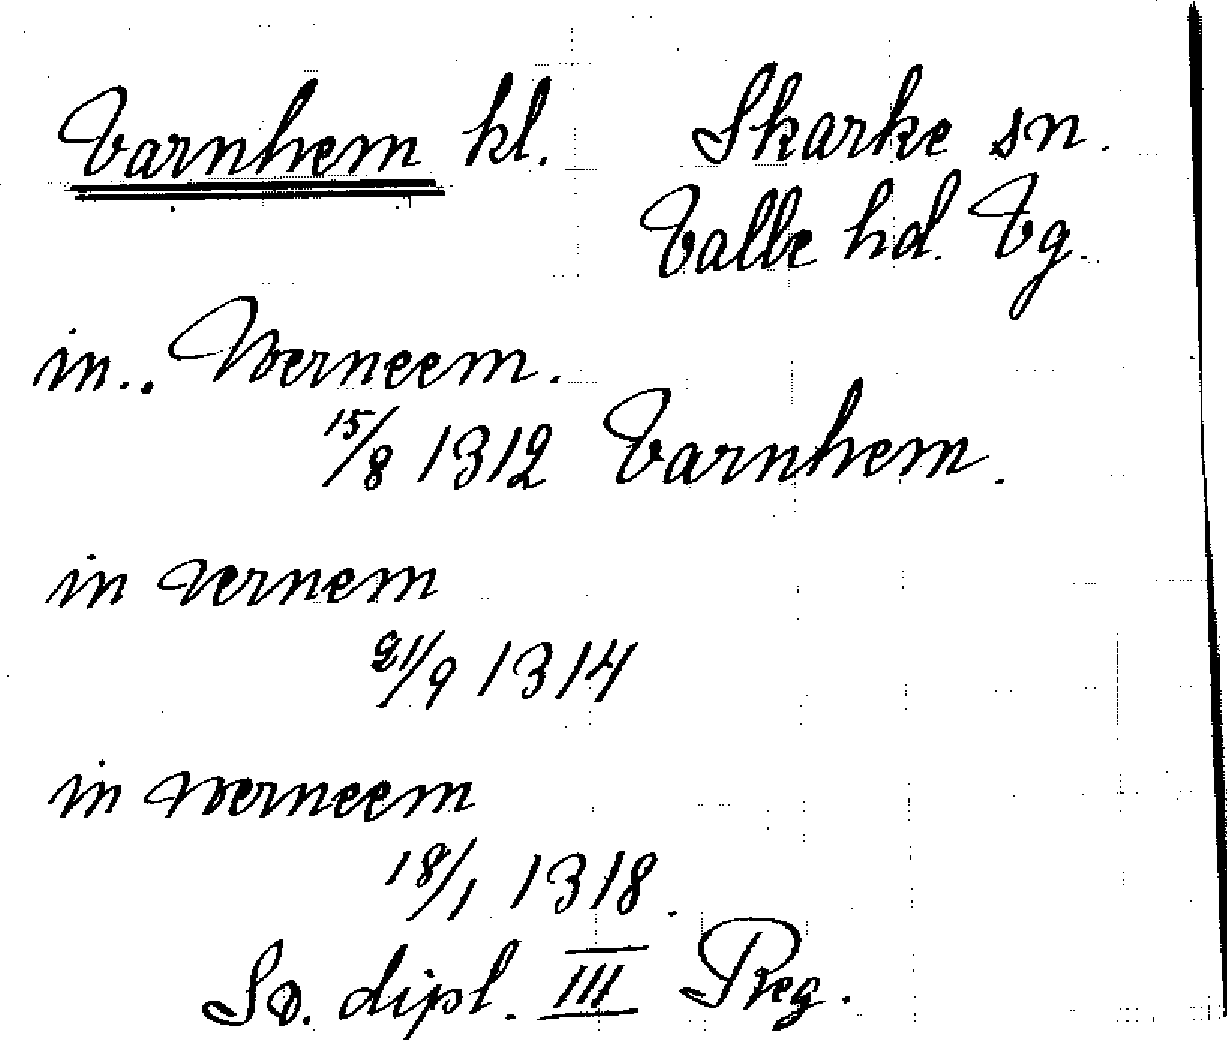 Varnhem kl. Skarke sn.
Valle hd. Vg.
in.. Werneem.
15/8 1312 Varnhem.
in vernem
21/9 1314
in werneem
18/1 1318.
Sv. dipl. III Reg.